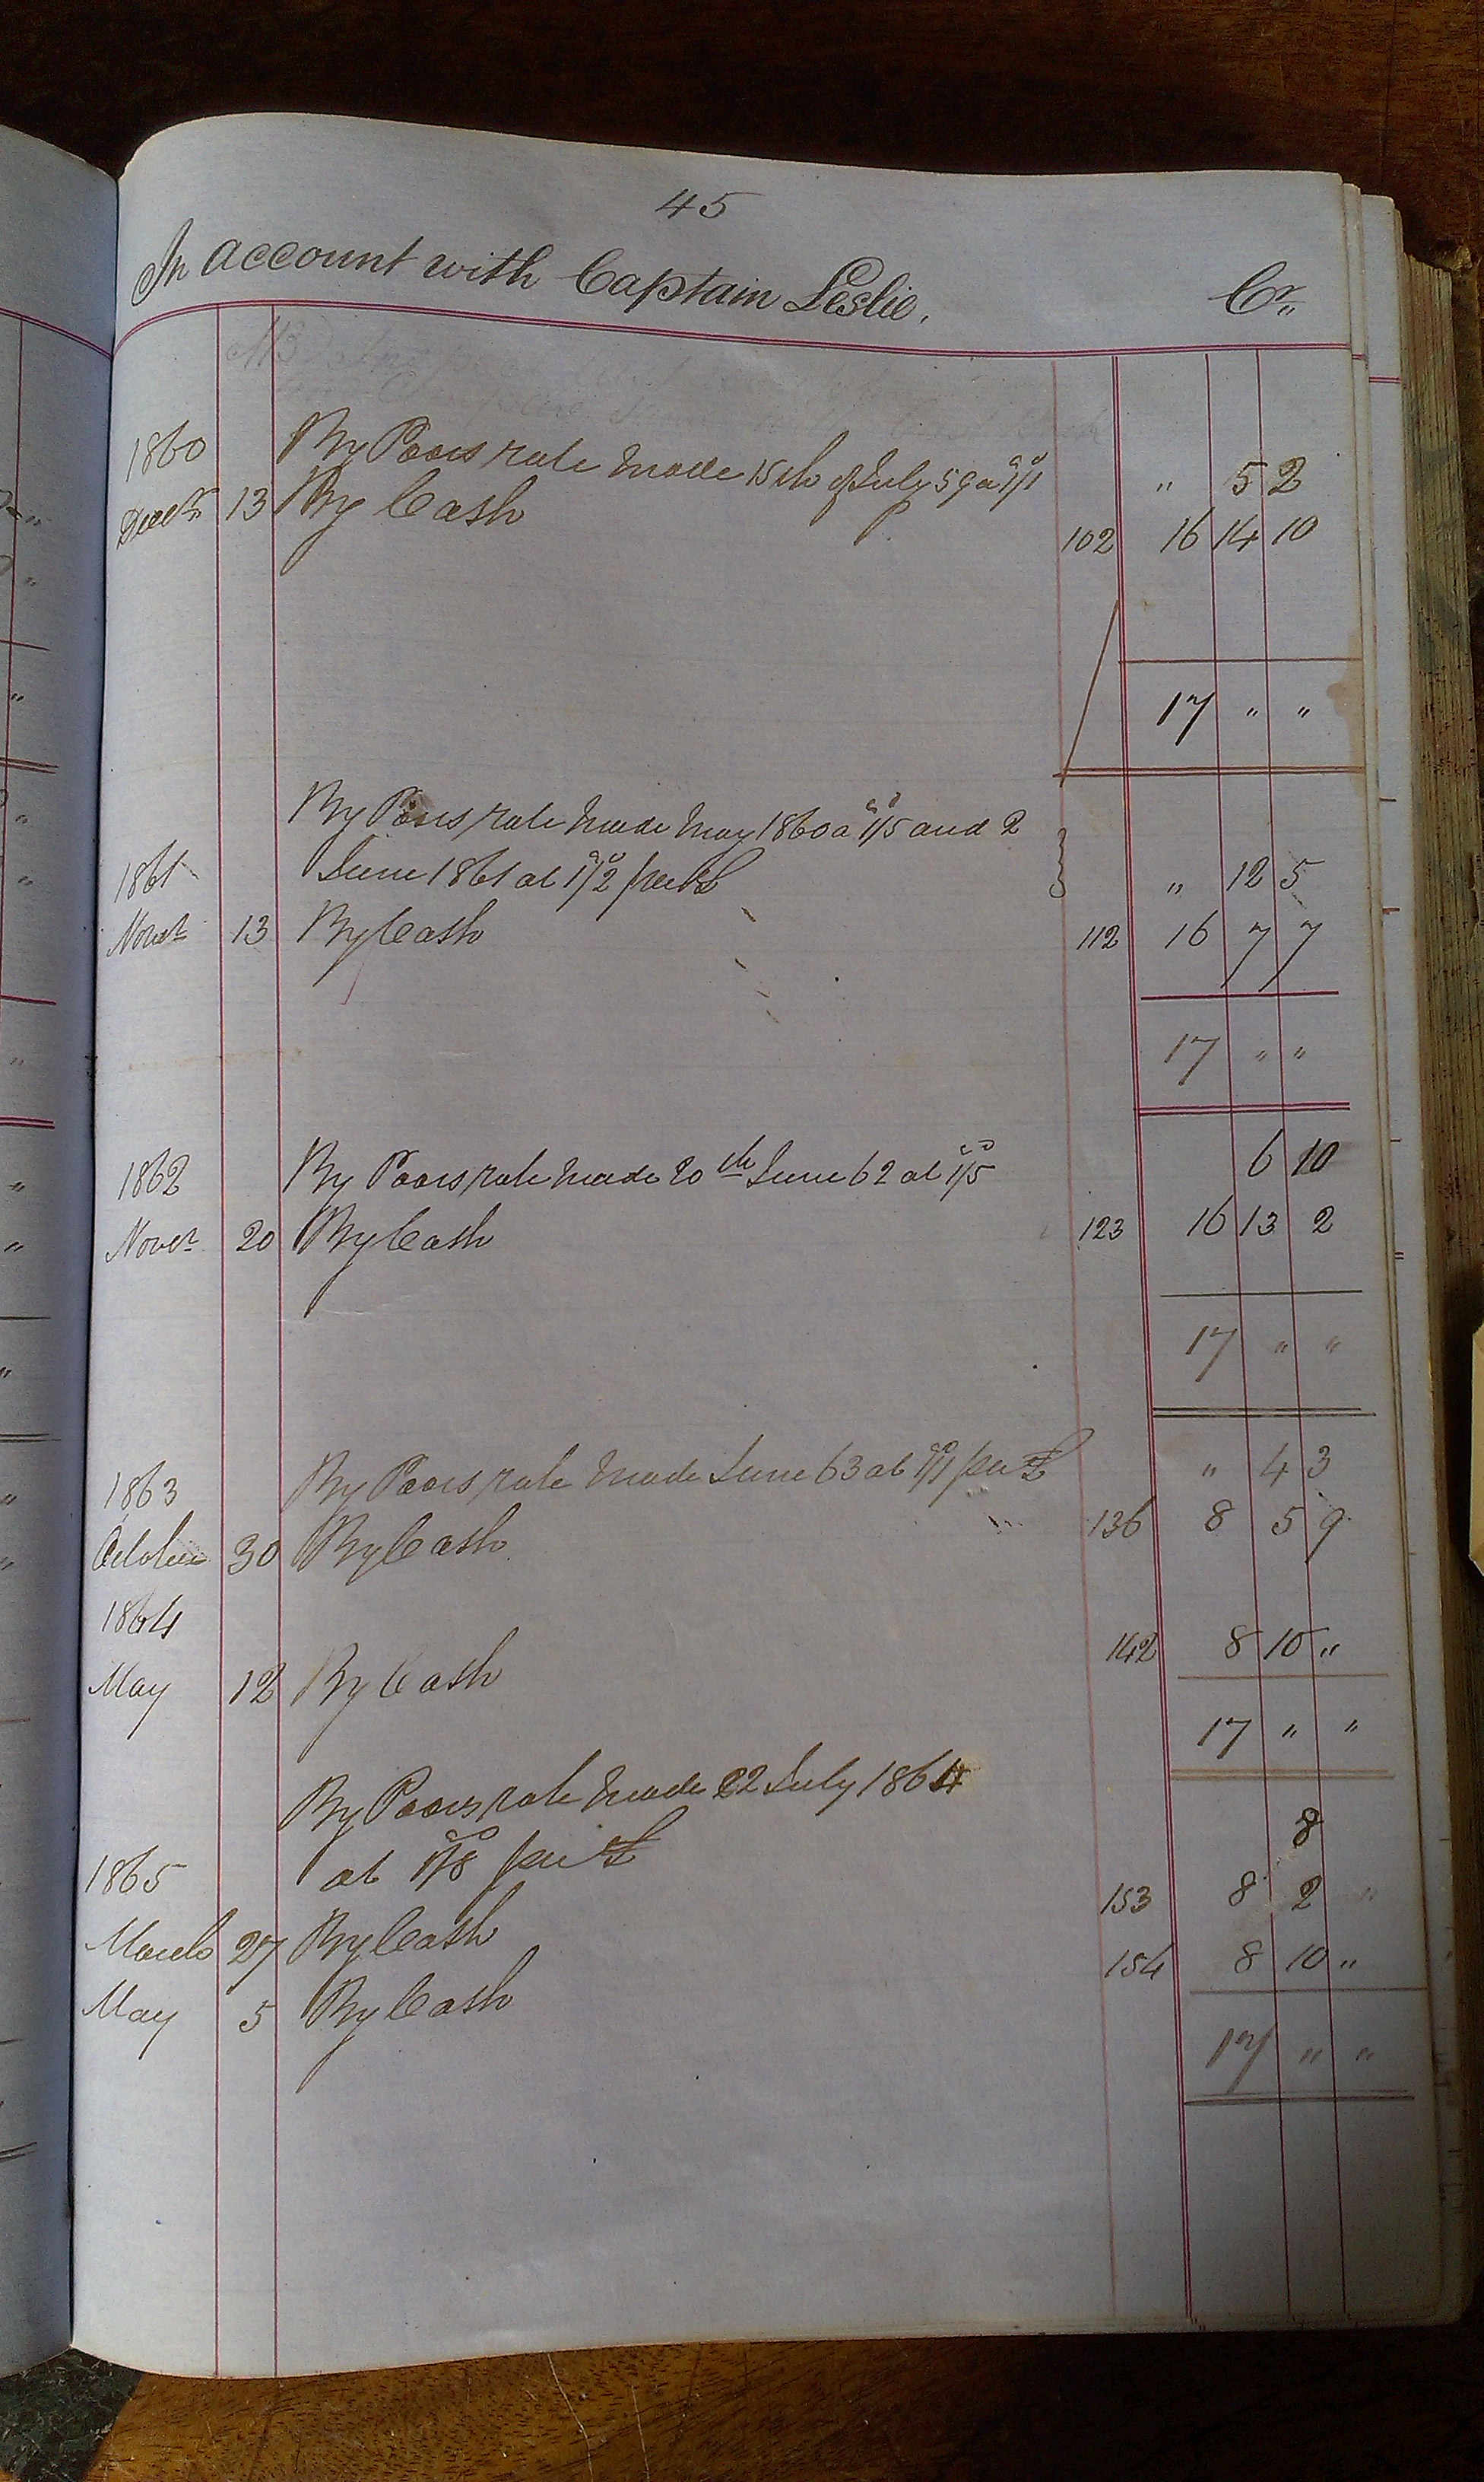 45
In account with Captain Leslie. Cr.,
1860 By Poors rate made 15th of July 59 a 1/1 " 5 2
Decr. 13 By Cash 102 16 14 10
17 " "
By Poors rate made May 1860 a 1/5 and
1861 June 1861 at 1/2 per £ " 12 5
Novr. 13 By Cash 112 16 7 7
17 " "
1862 By Poors rate made 20th June 62 at 1/5 6 10
Novr. 20 By Cash 123 16 13 2
17 " "
By Poors rate made June 63 at 1/1 per £ " 4 3
1863
October 30 By Cash 136 8 5 9
1864
May 12 By Cash 142 8 10 "
17 " "
By Poors rate made 22 July 1864
1865 at 1/8 per £ 8
March 27 By Cash 153 8 2 "
May 5 By Cash 154 8 10 "
17 " "